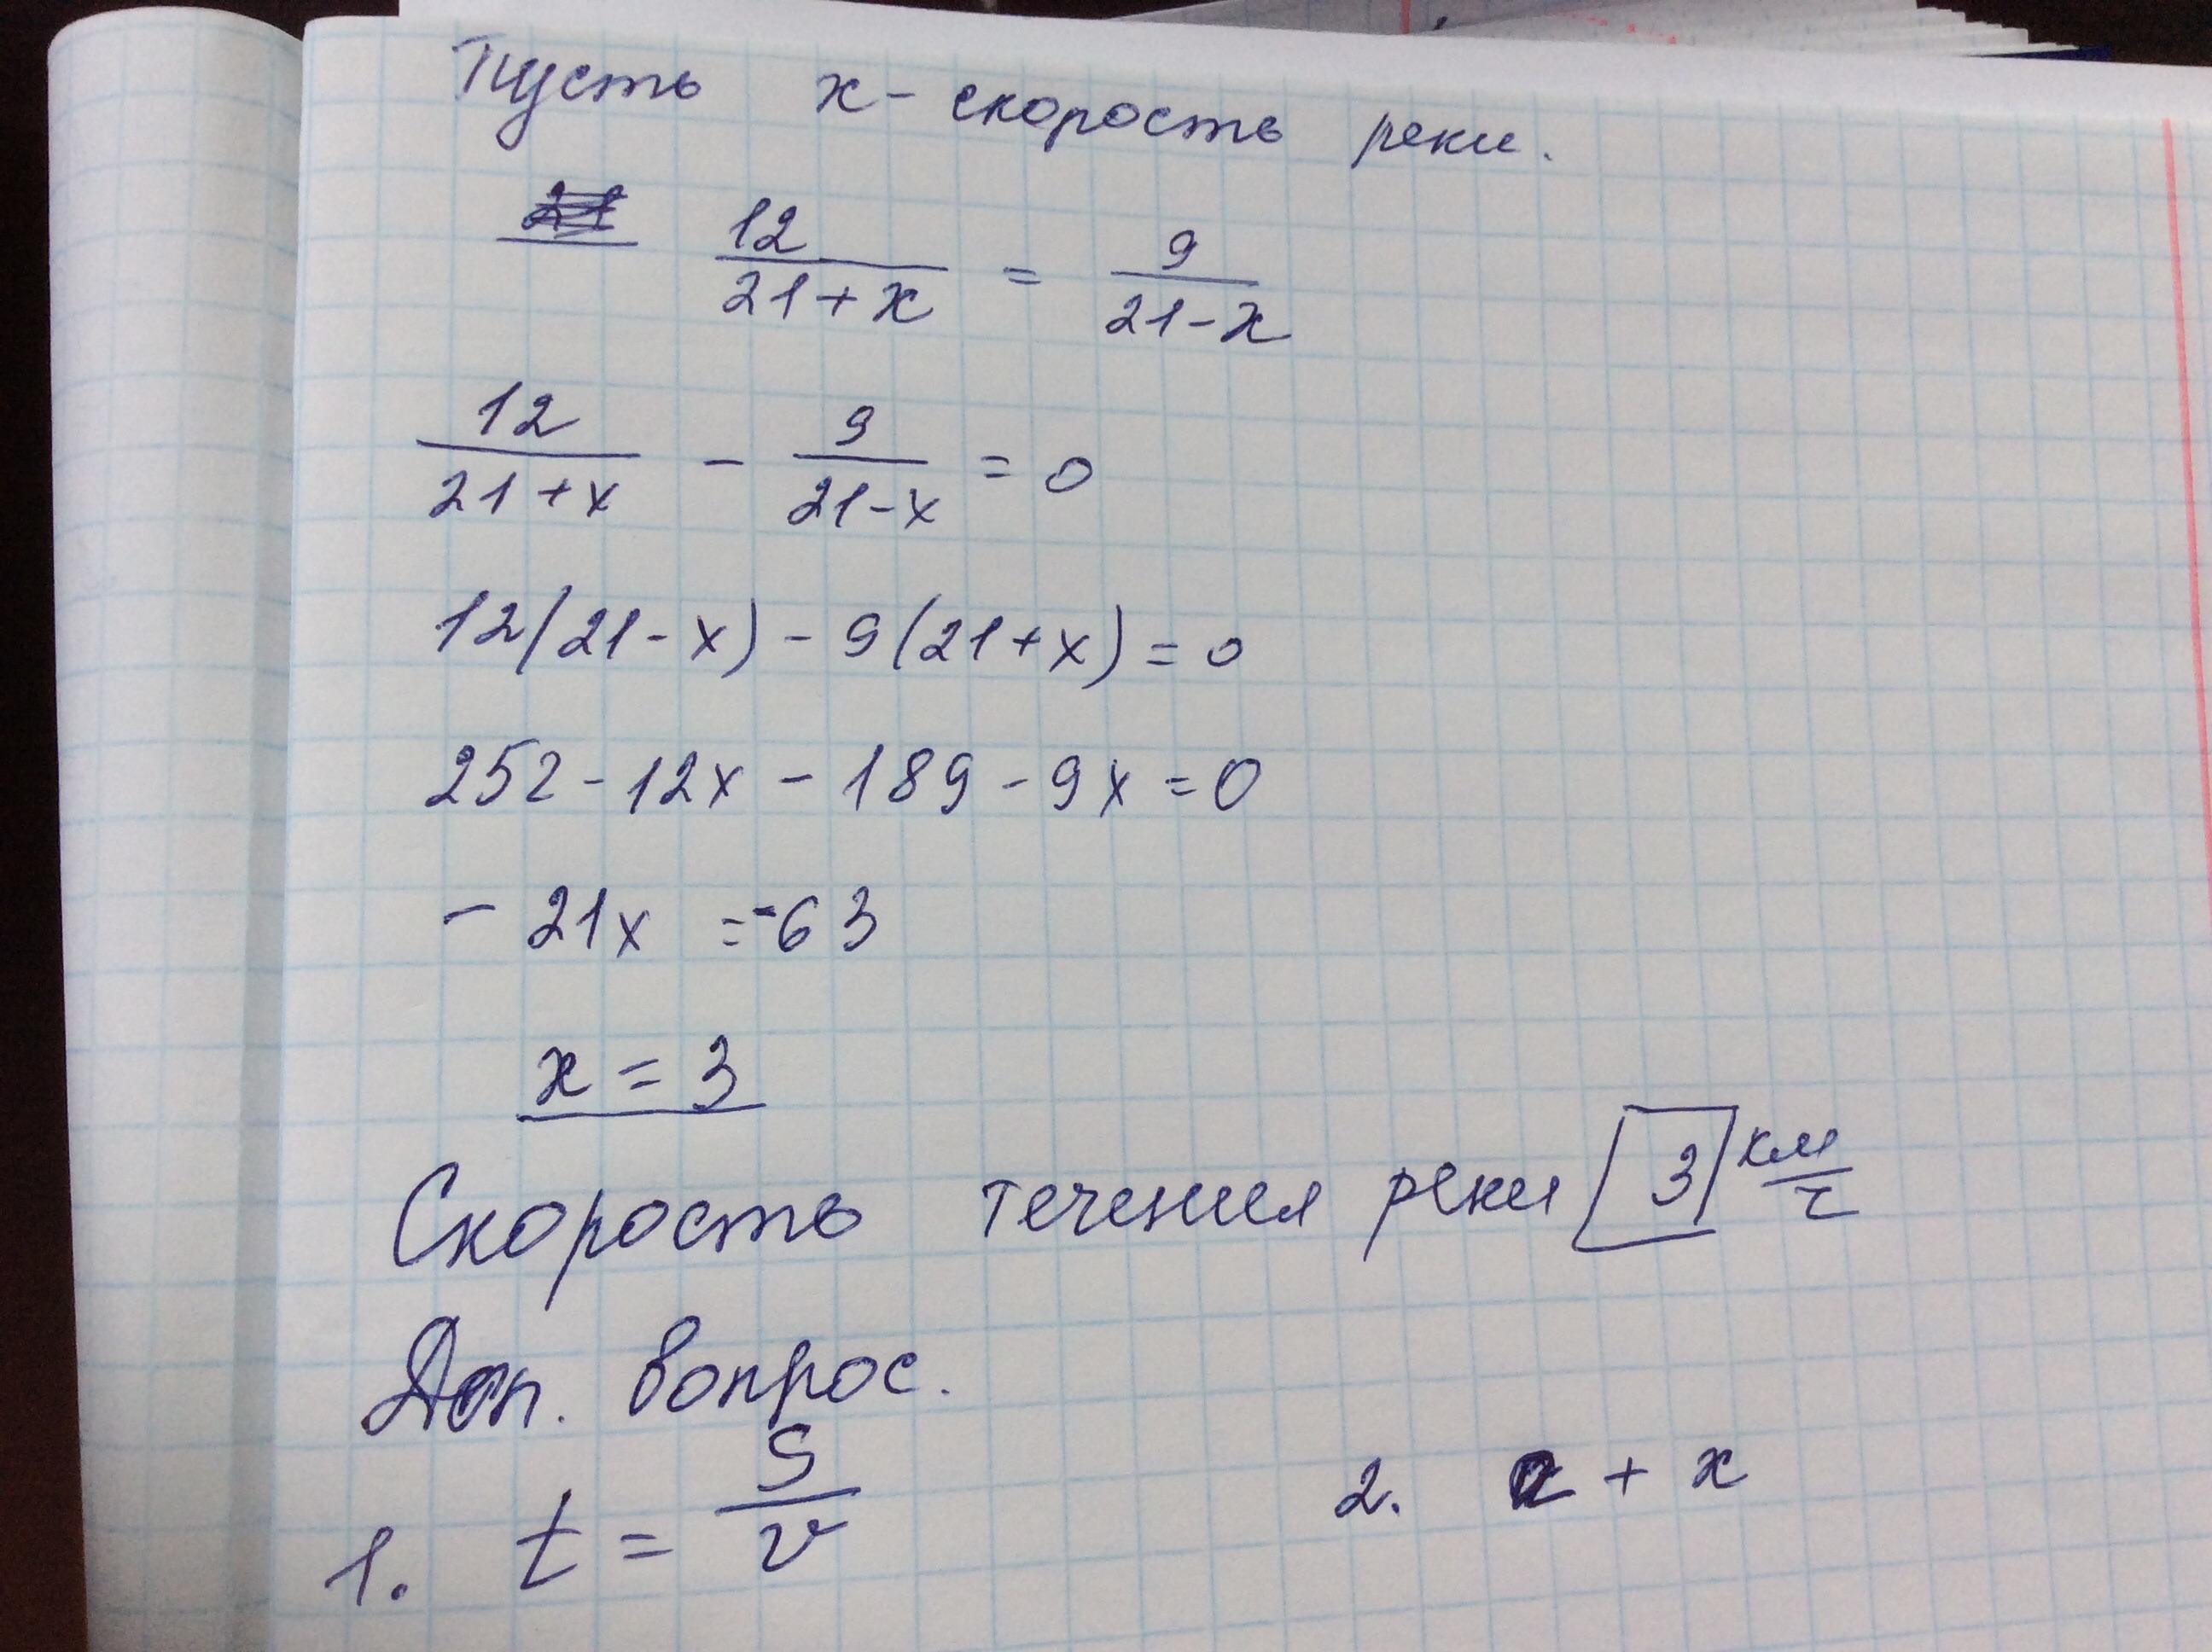 Пусть x - скорость реки.
12/(21+x) = 9/(21-x)
12/(21+x) - 9/(21-x) = 0
12(21-x) - 9(21+x) = 0
252 - 12x - 189 - 9x = 0
- 21x = -63
x = 3
Скорость течения реки 3 км/ч
Доп. вопрос.
1. t = S/v
2. a + x